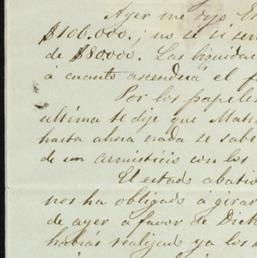 Ayer me dijo E
$100.000.; no sé si se
de $80000. Las liquidac
á cuanto ascenderá el p
Por los papeles
ultima te dije que Mat
hasta ahora nada se sabe
de un armisticio con los
El estado abativ
nos ha obligado á girar
de ayer á favor de Dick
habias realizado ya los